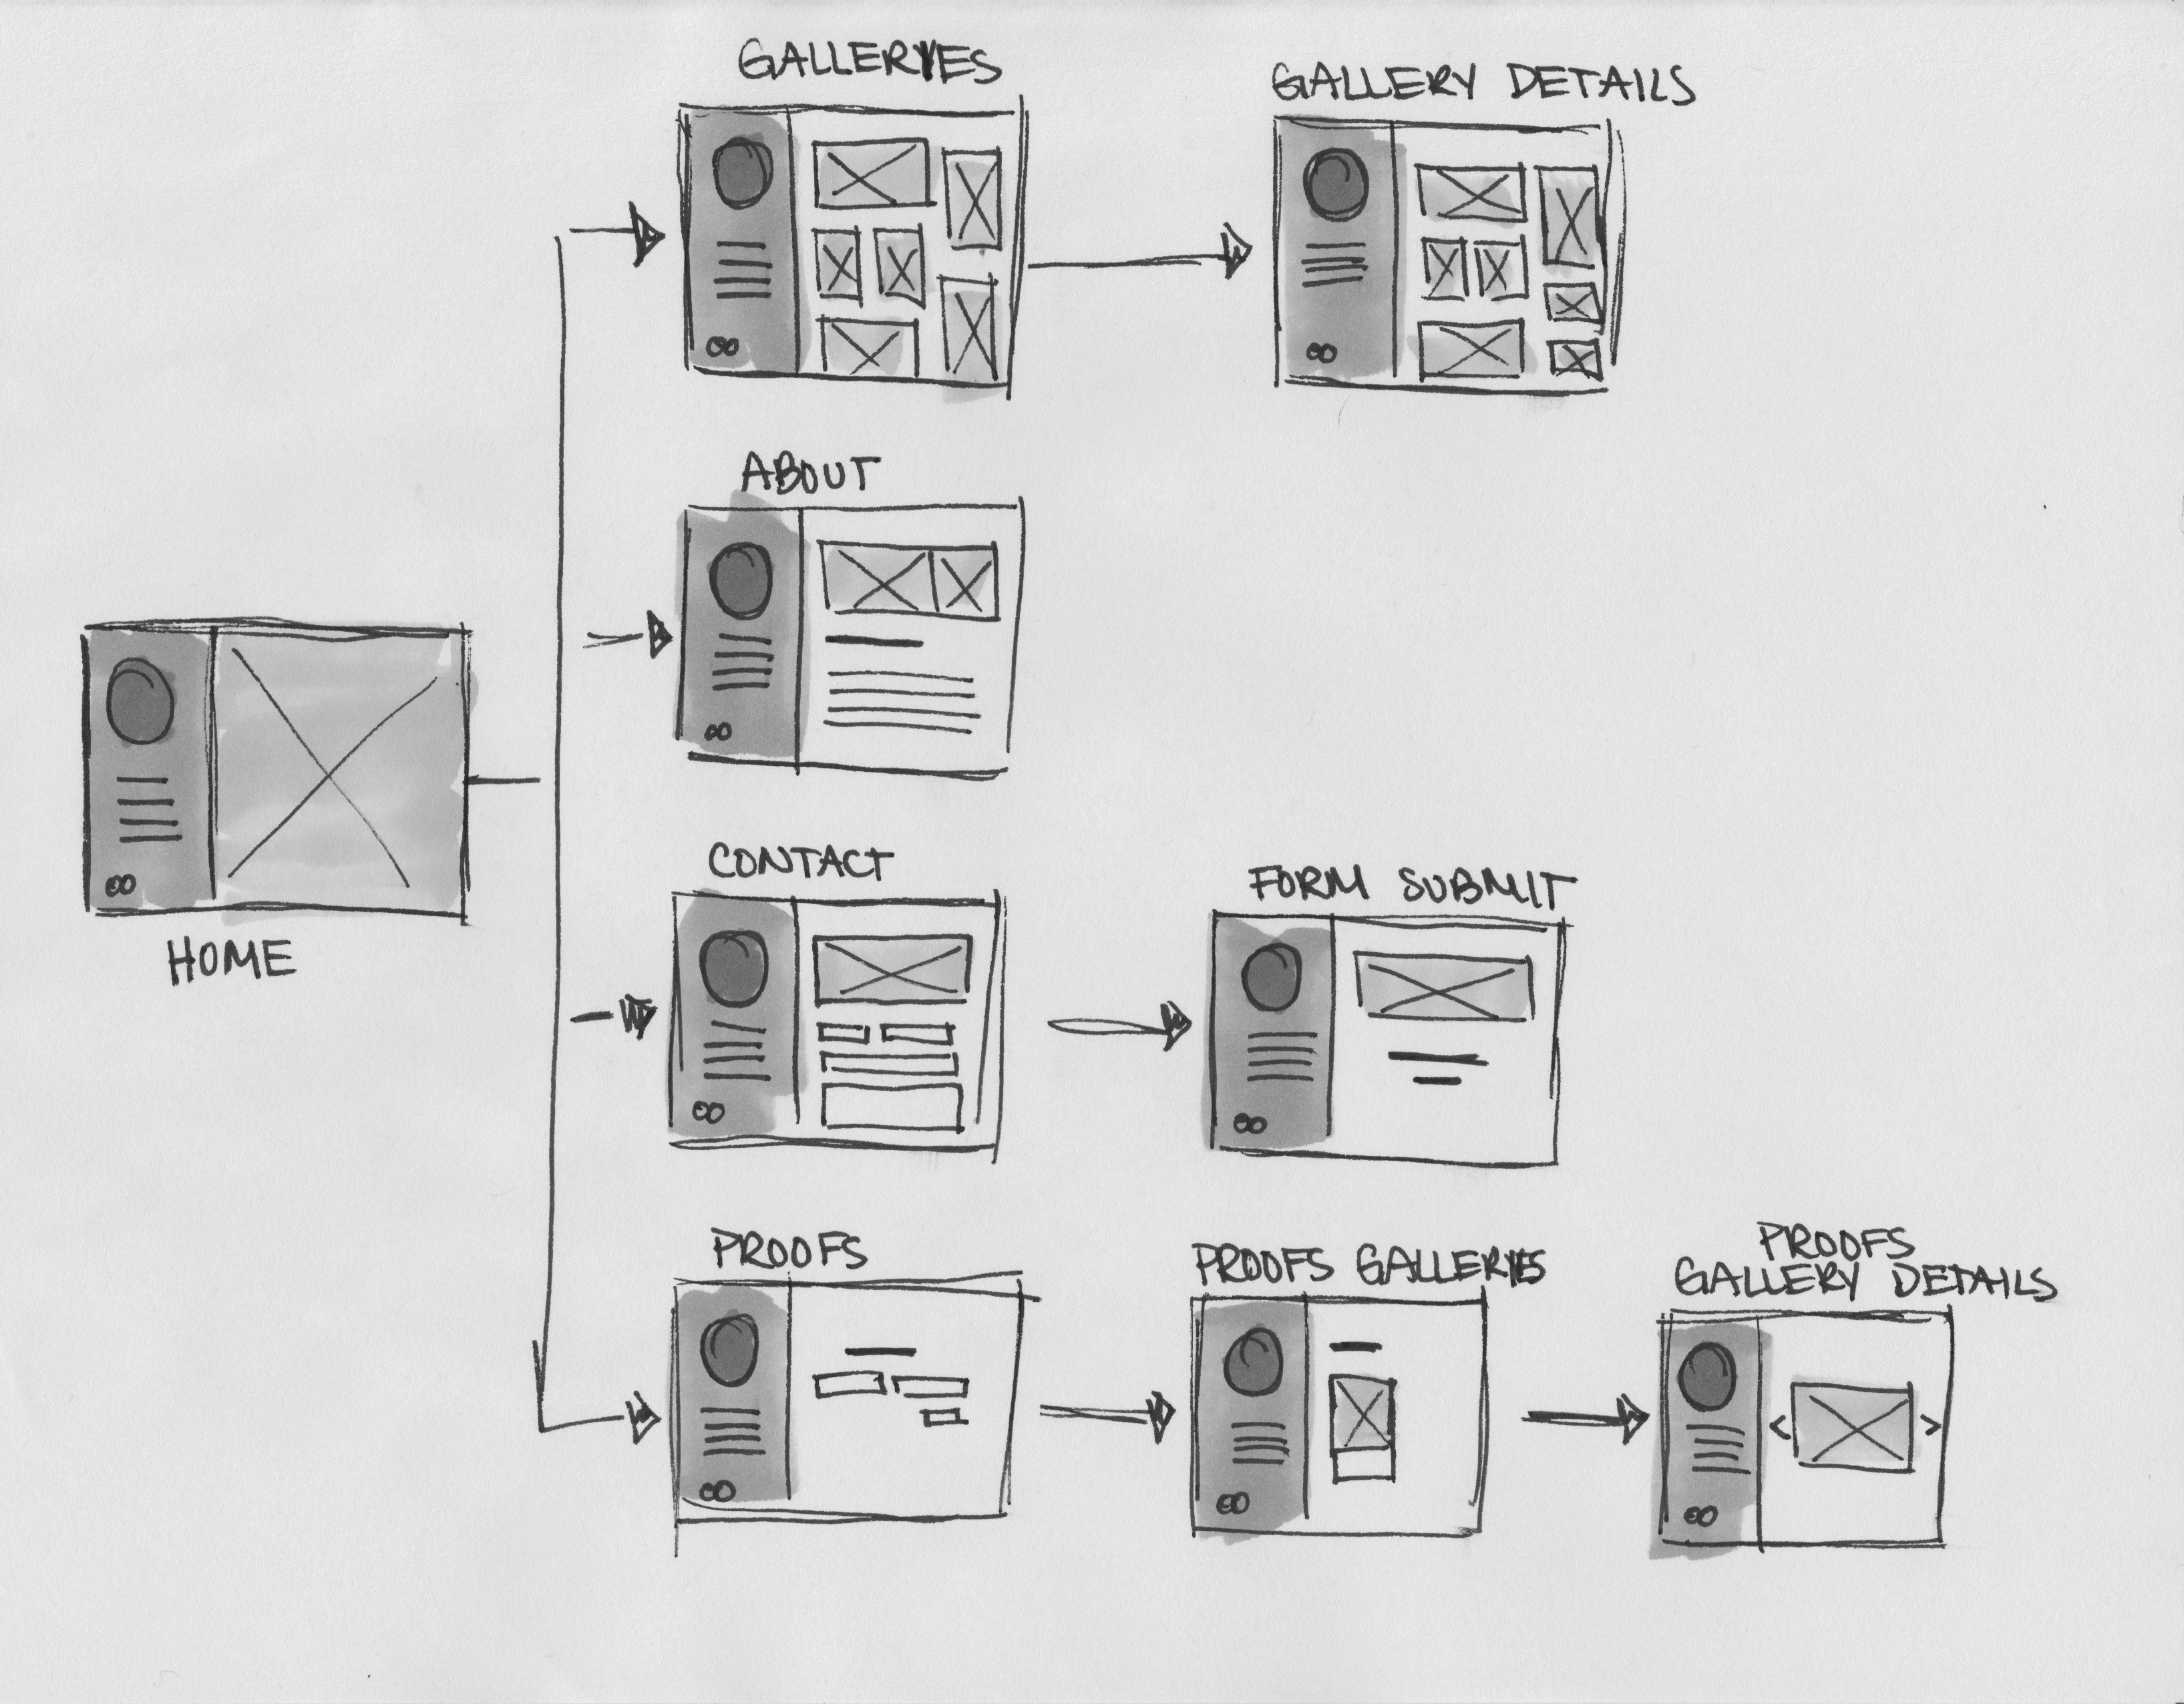 GALLERIES
GALLERY DETAILS
ABOUT
HOME
CONTACT
FORM SUBMIT
PROOFS
PROOFS GALLERIES
PROOFS
GALLERY DETAILS